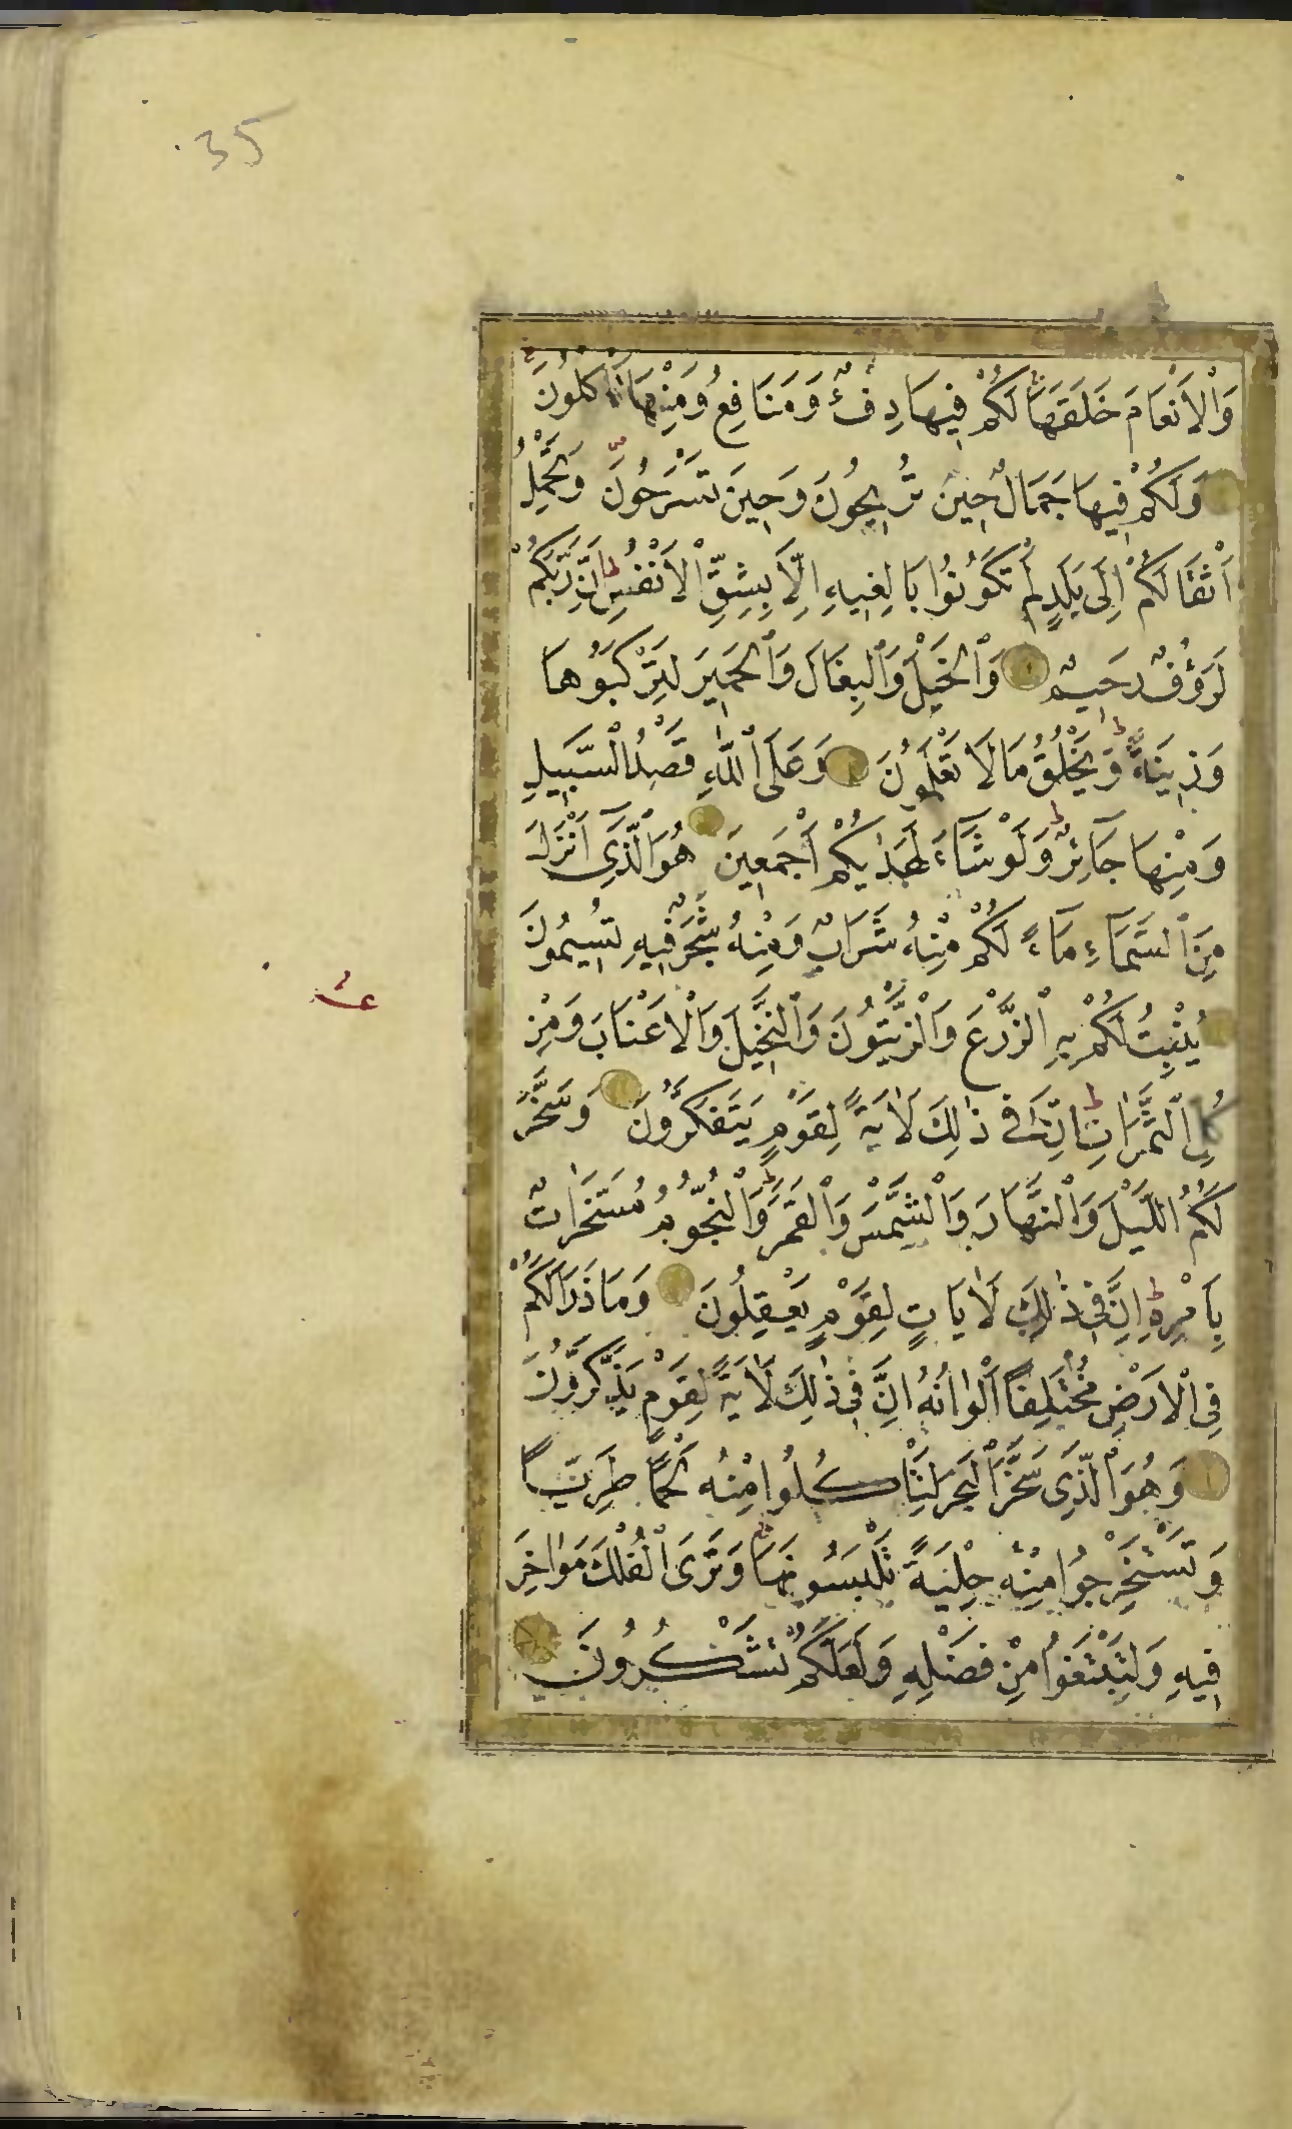 35
وَالْاَنْعَامَ خَلَقَهَا لَكُمْ فِيهَا دِفْءٌ وَمَنَافِعُ وَمِنْهَا تَأْكُلُونَ
وَلَكُمْ فِيهَا جَمَالٌ حِينَ تُرِيحُونَ وَحِينَ تَسْرَحُونَ وَتَحْمِلُ
اَثْقَالَكُمْ اِلٰى بَلَدٍ لَمْ تَكُونُوا بَالِغِيهِ اِلَّا بِشِقِّ الْاَنْفُسِ اِنَّ رَبَّكُمْ
لَرَؤُفٌ رَحِيمٌ وَالْخَيْلَ وَالْبِغَالَ وَالْحَمِيرَ لِتَرْكَبُوهَا
وَزِينَةً وَيَخْلُقُ مَا لَا تَعْلَمُونَ وَعَلَى اللّٰهِ قَصْدُ السَّبِيلِ
وَمِنْهَا جَآئِرٌ وَلَوْ شَآءَ لَهَدٰيكُمْ اَجْمَعِينَ هُوَ الَّذِى اَنْزَلَ
مِنَ السَّمَآءِ مَآءً لَكُمْ مِنْهُ شَرَابٌ وَمِنْهُ شَجَرٌ فِيهِ تُسِيمُونَ
عـ
يُنْبِتُ لَكُمْ بِهِ الزَّرْعَ وَالزَّيْتُونَ وَالنَّخِيلَ وَالْاَعْنَابَ وَمِنْ
كُلِّ الثَّمَرَاتِ اِنَّ فِى ذٰلِكَ لَاٰيَةً لِقَوْمٍ يَتَفَكَّرُونَ وَسَخَّرَ
لَكُمُ اللَّيْلَ وَالنَّهَارَ وَالشَّمْسَ وَالْقَمَرَ وَالنُّجُومُ مُسَخَّرَاتٌ
بِاَمْرِهِ اِنَّ فِى ذٰلِكَ لَاٰيَاتٍ لِقَوْمٍ يَعْقِلُونَ وَمَا ذَرَاَ لَكُمْ
فِى الْاَرْضِ مُخْتَلِفًا اَلْوَانُهُ اِنَّ فِى ذٰلِكَ لَاٰيَةً لِقَوْمٍ يَذَّكَّرُونَ
وَهُوَ الَّذِى سَخَّرَ الْبَحْرَ لِتَاْكُلُوا مِنْهُ لَحْمًا طَرِيًّا
وَتَسْتَخْرِجُوا مِنْهُ حِلْيَةً تَلْبَسُونَهَا وَتَرَى الْفُلْكَ مَوَاخِرَ
فِيهِ وَلِتَبْتَغُوا مِنْ فَضْلِهِ وَلَعَلَّكُمْ تَشْكُرُونَ